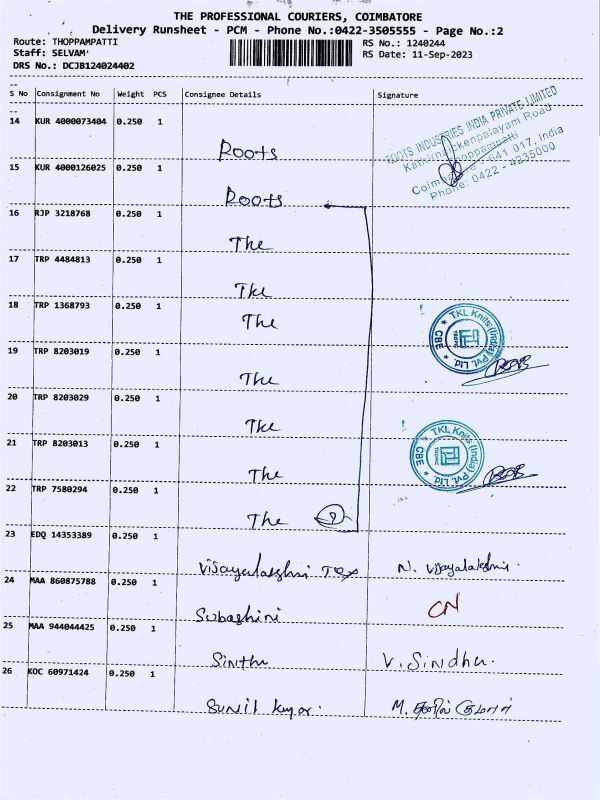 THE PROFESSIONAL COURIERS, COIMBATORE
Delivery Runsheet - PCM - Phone No.:0422-3505555 - Page No.:2
Route: THOPPAMPATTI RS No.: 1240244
Staff: SELVAM RS Date: 11-Sep-2023
DRS No.: DCJB124024402
S No Consignment No Weight PCS Consignee Details Signature
14 KUR 4000073404 0.250 1
Roots
ROOTS INDUSTRIES INDIA PRIVATE LIMITED
Thoppampatti
Coimbatore - 641 017, India
Phone: 0422 - 4235000
15 KUR 4000126025 0.250 1
Roots
16 RJP 3218768 0.250 1
The
17 TRP 4484813 0.250 1
The
18 TRP 1368793 0.250 1
The
TKL Knits (India) Pvt. Ltd. CBE
19 TRP 8203019 0.250 1
The
20 TRP 8203029 0.250 1
The
21 TRP 8203013 0.250 1
The
TKL Knits (India) Pvt. Ltd. CBE
22 TRP 7580294 0.250 1
The
23 EDQ 14353389 0.250 1
Vijayalakshmi Tex N. Vijayalakshmi.
24 MAA 860875788 0.250 1
Subashini CN
25 MAA 944044425 0.250 1
Sinthu V. Sindhu.
26 KOC 60971424 0.250 1
Sunil kumar. M.